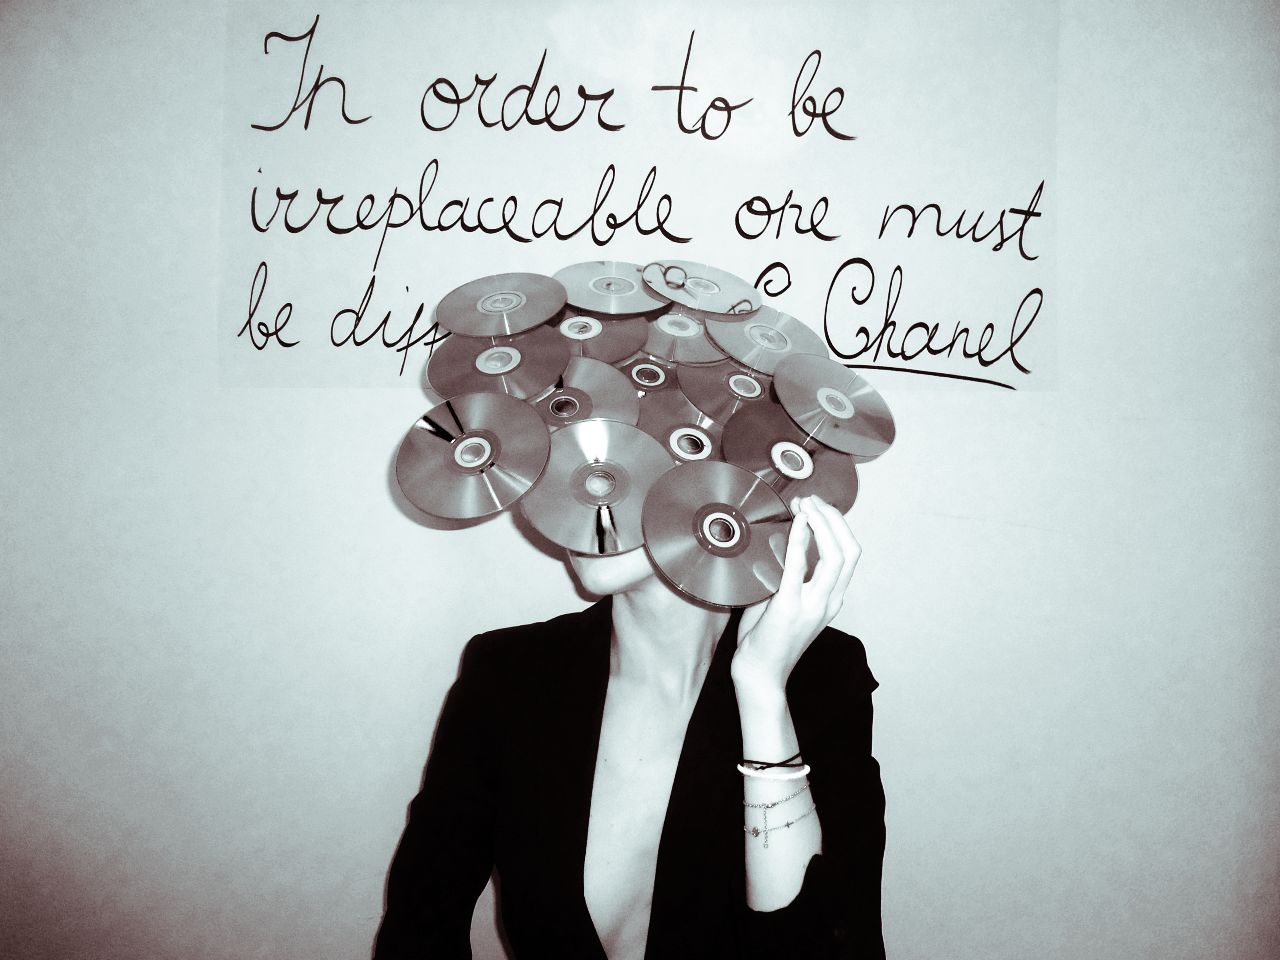 In order to be
irreplaceable one must
be diff C Chanel